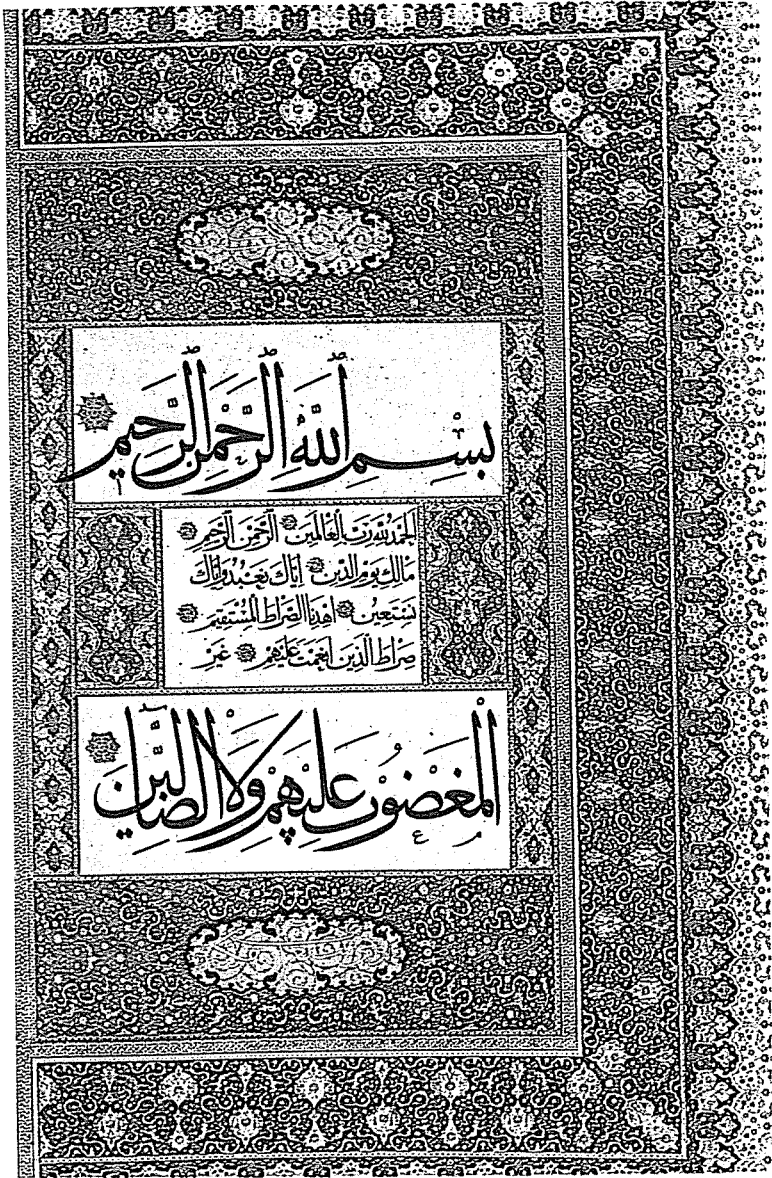 بِسْمِ اللَّهِ الرَّحْمٰنِ الرَّحِيمِ
الحَمْدُ لِلّٰهِ رَبِّ الْعَالَمِينَ الرَّحْمٰنِ الرَّحِيمِ
مَالِكِ يَوْمِ الدِّينِ اِيَّاكَ نَعْبُدُ وَاِيَّاكَ
نَسْتَعِينُ اهْدِنَا الصِّرَاطَ الْمُسْتَقِيمَ
صِرَاطَ الَّذِينَ اَنْعَمْتَ عَلَيْهِمْ غَيْرِ
الْمَغْضُوبِ عَلَيْهِمْ وَلَا الضَّالِّينَ